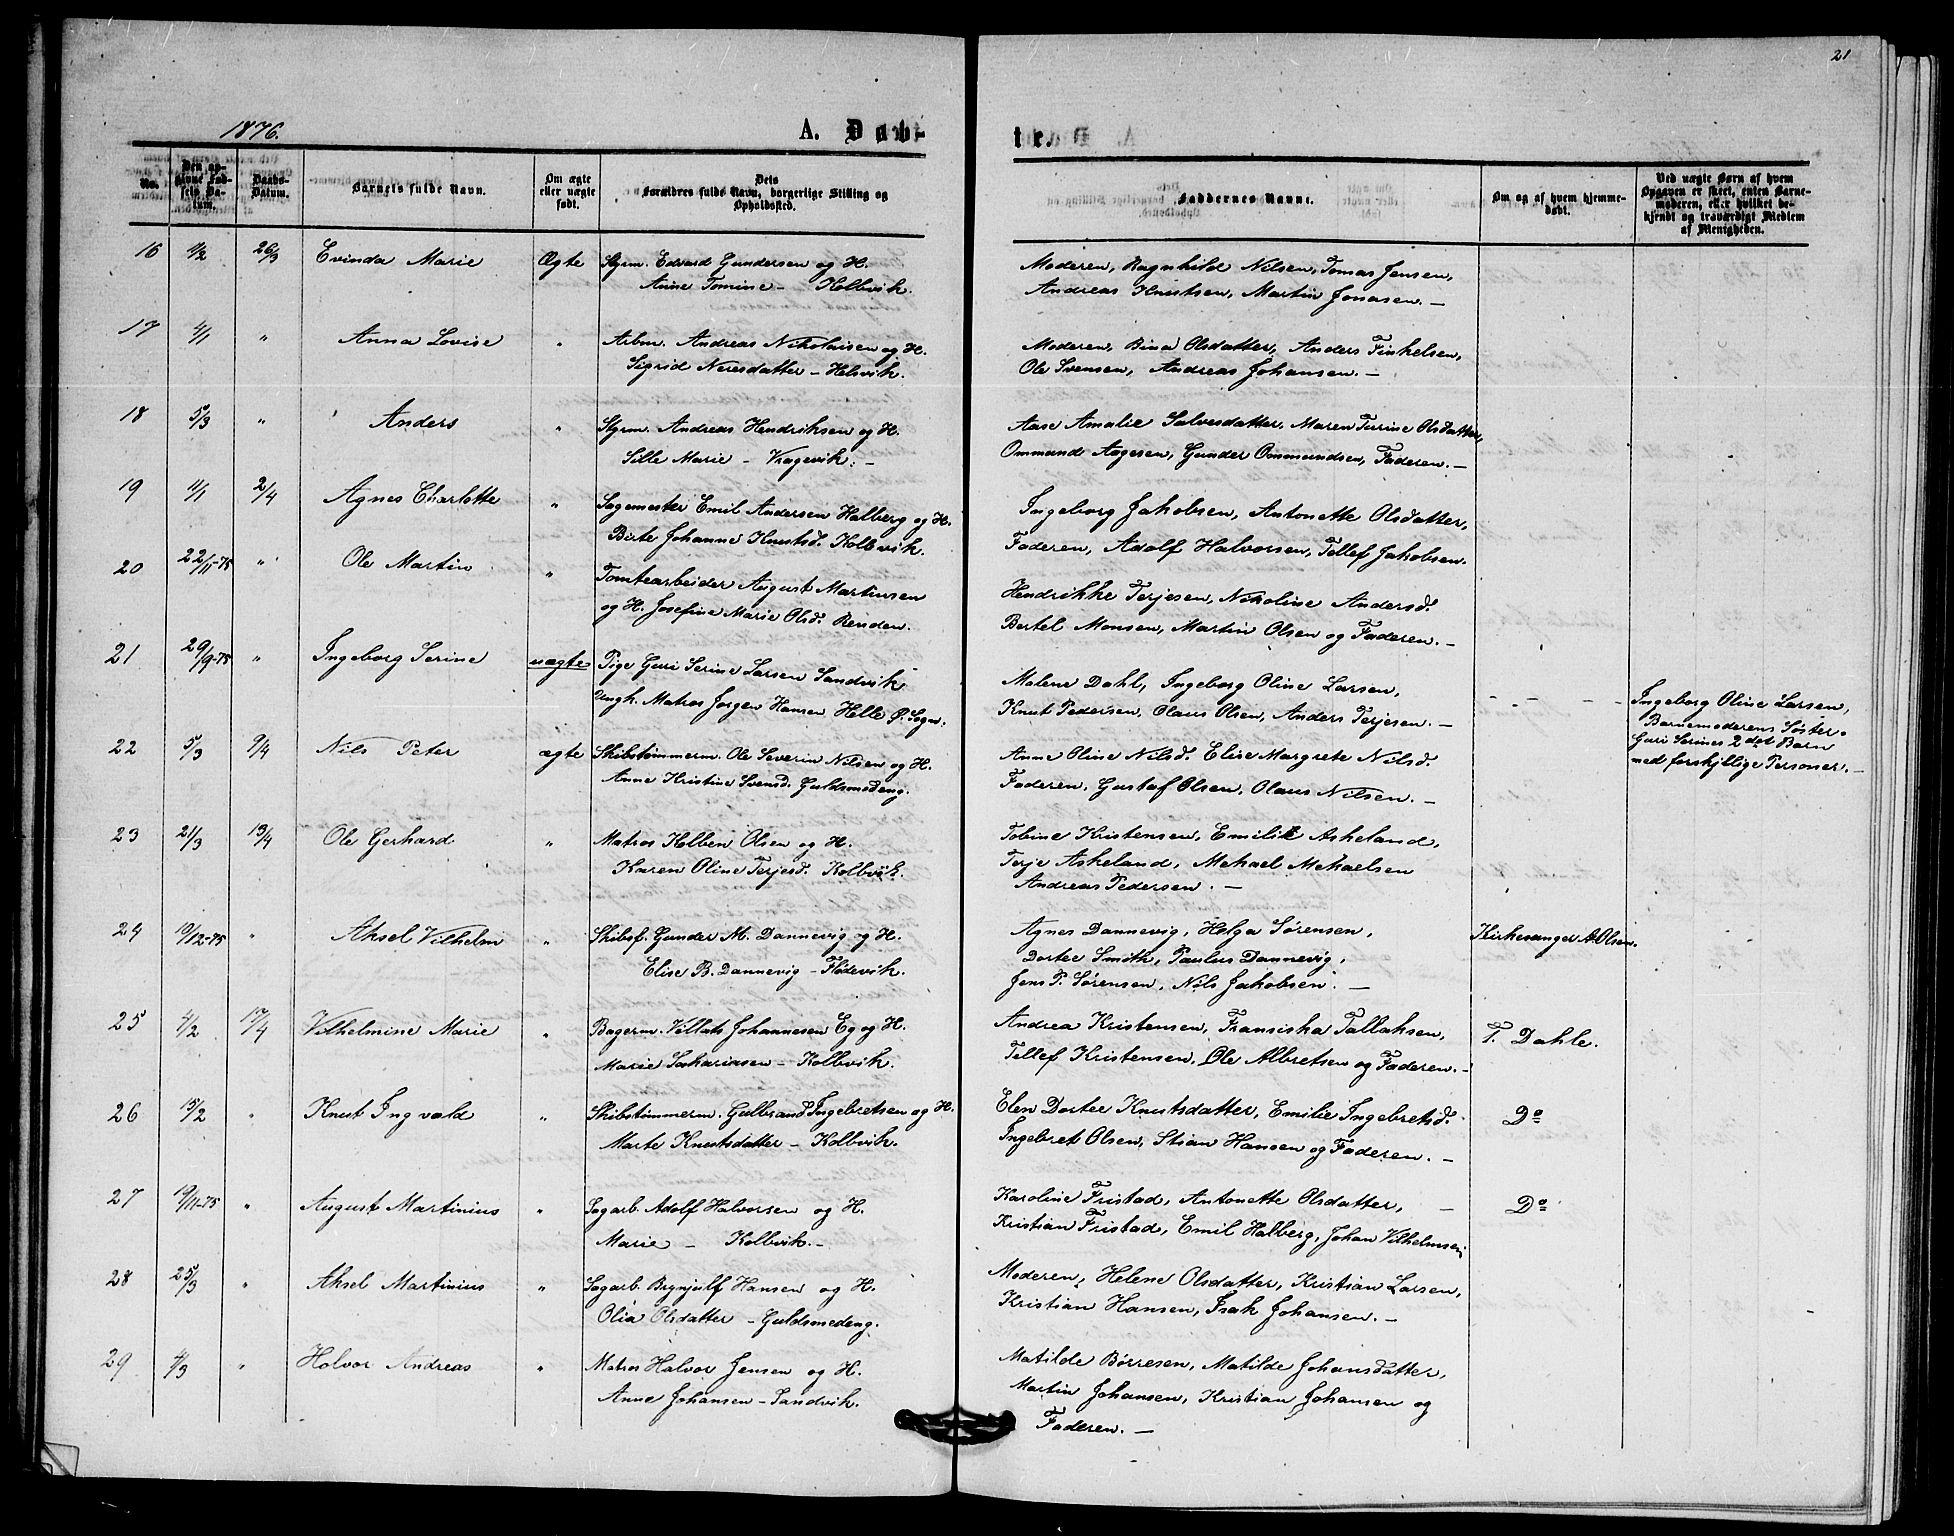 21
1876.
A. Døbte.
No.
Den opgivne Fødsels Datum.
Daabs-Datum.
Barnets fulde Navn.
Om ægte eller uægte født.
Dets Forældres fulde Navn, borgerlige Stilling og Opholdssted.
Faddernes Navne.
Om og af hvem hjemmedøbt.
Ved uægte Børn af hvem Opgaven er skeet, enten Barnemoderen, eller hvilket bekjendt og troværdigt Medlem af Menigheden.
16 4/2 26/3 Evinda Marie Ægte Styrm. Edvard Gundersen og H.
Anne Tomine - Kolbvik.
Moderen, Ragnhild Nilsen, Tomas Jensen,
Andreas Knutsen, Martin Jonasen. -
17 4/1 " Anna Lovise " Arbm. Andreas Nikolaisen og H.
Sigrid Neresdatter - Helsvik.
Moderen, Bina Olsdatter, Anders Finkelsen,
Ole Svensen, Andreas Johansen. -
18 5/3 " Anders " Styrm. Andreas Hendriksen og H.
Sille Marie - Vragevik. -
Aase Amalie Salvesdatter, Maren Terrine Olsdatter,
Ommund Aagesen, Gunder Ommundsen, Faderen. -
19 4/1 2/4 Agnes Charlotte " Sagemester Emil Andersen Halberg og H.
Birte Johanne Knutsd. Kolbvik.
Ingeborg Jakobsen, Antonette Olsdatter,
Faderen, Adolf Halvorsen, Tellef Jakobsen.
20 22/11-75 " Ole Martin " Tomtearbeider August Martinsen
og H. Josefine Marie Olsd. Renden.
Hendrikke Terjesen, Nikoline Andersd.
Bertel Monsen, Martin Olsen og Faderen. -
21 29/9-75 " Ingeborg Serine uægte Pige Guri Serine Larsen Sandvik
Ungk. Matros Jørgen Hansen Helle Ø. Sogn.
Malene Dahl, Ingeborg Oline Larsen,
Knut Pedersen, Olaus Olsen, Anders Terjesen. -
- - - -
Ingeborg Oline Larsen,
Barnemoderens Søster.
Guri Serines 2det Barn
med forskjellige Personer. -
22 5/3 9/4 Nils Peter ægte Skibstømmerm. Ole Severin Nilsen og H.
Anne Kristine Svensd. Guldsmedeng.
Anne Oline Nilsd. Elise Margrete Nilsd.
Faderen, Gustaf Olsen, Olaus Nilsen. -
23 21/3 13/4 Ole Gerhard " Matros Kolben Olsen og H.
Karen Oline Terjesd. Kolbvik.
Tobine Kristensen, Emilie Askeland,
Terje Askeland, Mekael Mekaelsen
Andreas Pedersen. -
24 19/12-75 " Aksel Vilhelm " Skibsf. Gunder M. Dannevig og H.
Elise B. Dannevig - Flødevik.
Agnes Dannevig, Helga Sørensen,
Dortee Smith, Paulus Dannevig,
Jens P. Sørensen, Nils Jakobsen. -
Kirkesanger A. Olsen.
25 4/2 17/4 Vilhelmine Marie " Bagerm. Villats Johannesen Eg og H.
Marie Sakariasen - Kolbvik.
Andrea Kristensen, Fransiska Tallaksen,
Tellef Kristensen, Ole Albretsen og Faderen. -
T. Dahle.
26 15/2 " Knut Ingvald " Skibstømmerm. Gulbrand Ingebretsen og H.
Marte Knutsdatter - Kolbvik.
Elen Dortee Knutsdatter, Emilie Ingebretsd.
Ingebret Olsen, Stian Hansen og Faderen. -
Do
27 19/11-75 " August Martinius " Sagarb. Adolf Halvorsen og H.
Marie - Kolbvik. -
Karoline Fristad, Antonette Olsdatter, -
Kristian Fristad, Emil Halberg, Johan Vilhelmsen
Do
28 25/3 " Aksel Martinius " Sagarb. Brynjulf Hansen og H.
Olia Olsdatter - Guldsmedeng.
Moderen, Helene Olsdatter, Kristian Larsen,
Kristian Hansen, Isak Johansen. -
29 4/3 " Halvor Andreas " Matros Halvor Jensen og H.
Anne Johansen - Sandvik.
Matilde Børresen, Matilde Johansdatter,
Martin Johansen, Kristian Johansen og
Faderen. -